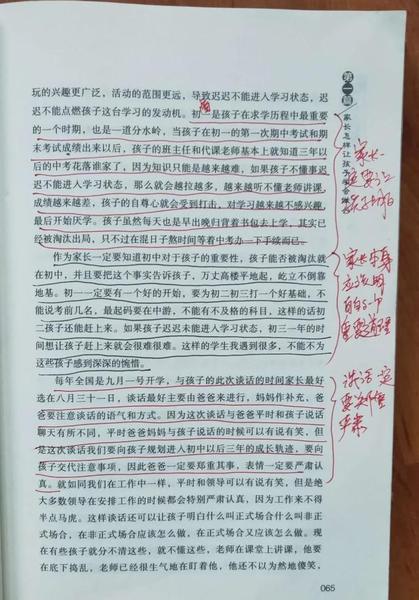 第一篇
家长怎样让孩子学会
玩的兴趣更广泛，活动的范围更远，导致迟迟不能进入学习状态，迟
迟不能点燃孩子这台学习的发动机。初一是孩子在求学历程中最重要
的一个时期，也是一道分水岭，当孩子在初一的第一次期中考试和期
末考试成绩出来以后，孩子的班主任和代课老师基本上就知道三年以
后的中考花落谁家了，因为知识只能是越来越难，如果孩子不懂事迟
迟不能进入学习状态，那么就会越拉越多，越来越听不懂老师讲课，
成绩越来越差，孩子的自尊心就会受到打击，对学习越来越不感兴趣，
最后开始厌学。孩子虽然每天也是早出晚归背着书包去上学，其实已
经被淘汰出局，只不过在混日子熬时间等着中考办一下手续而已。
作为家长一定要知道初中对于孩子的重要性，孩子能否被淘汰就
在初中，并且要把这个事实告诉孩子，万丈高楼平地起，屹立不倒靠
地基。初一一定要有一个好的开始，要为初二初三打一个好基础，不
能说考前几名，最起码要在中游，不能有不及格的科目，这样的话初
二孩子还能赶上来。如果孩子迟迟未能进入学习状态，初三一年的时
间想让孩子赶上来就会很难很难。这样的学生我遇到很多，不能不为
这些孩子感到深深的惋惜。
每年全国是九月一号开学，与孩子的此次谈话的时间家长最好
选在八月三十一日，谈话最好主要由爸爸来进行，妈妈作补充，爸
爸要注意谈话的语气和方式。因为这次谈话与爸爸平时和孩子说话
聊天有所不同，平时爸爸妈妈与孩子说话的时候可以有说有笑，但
是这次谈话我们要向孩子规划进入初中以后三年的成长轨迹，要向
孩子交代注意事项，因此爸爸一定要郑重其事，表情一定要严肃认
真。就如同我们在工作中一样，平时和领导可以有说有笑，但是绝
大多数领导在安排工作的时候都会特别严肃认真，因为工作来不得
半点马虎。这样谈话还可以让孩子明白什么叫正式场合什么叫非正
式场合，在非正式场合应该怎么做，在正式场合又应该怎么做。现
在有些孩子就分不清这些，就不懂这些，老师在课堂上讲课，他要
在底下捣乱，老师已经很生气地在盯着他，他还不以为然地傻笑，
家长一
定要让
孩子明白
家长本身
应该明
白的一个
重要道理
谈话一定
要
严肃
065